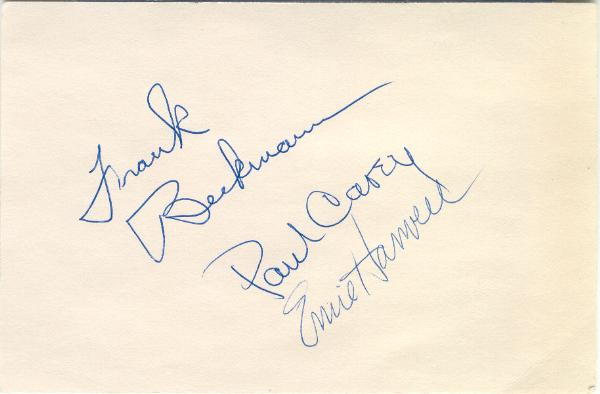 Frank
Beckmann
Paul Carey
Ernie Harwell